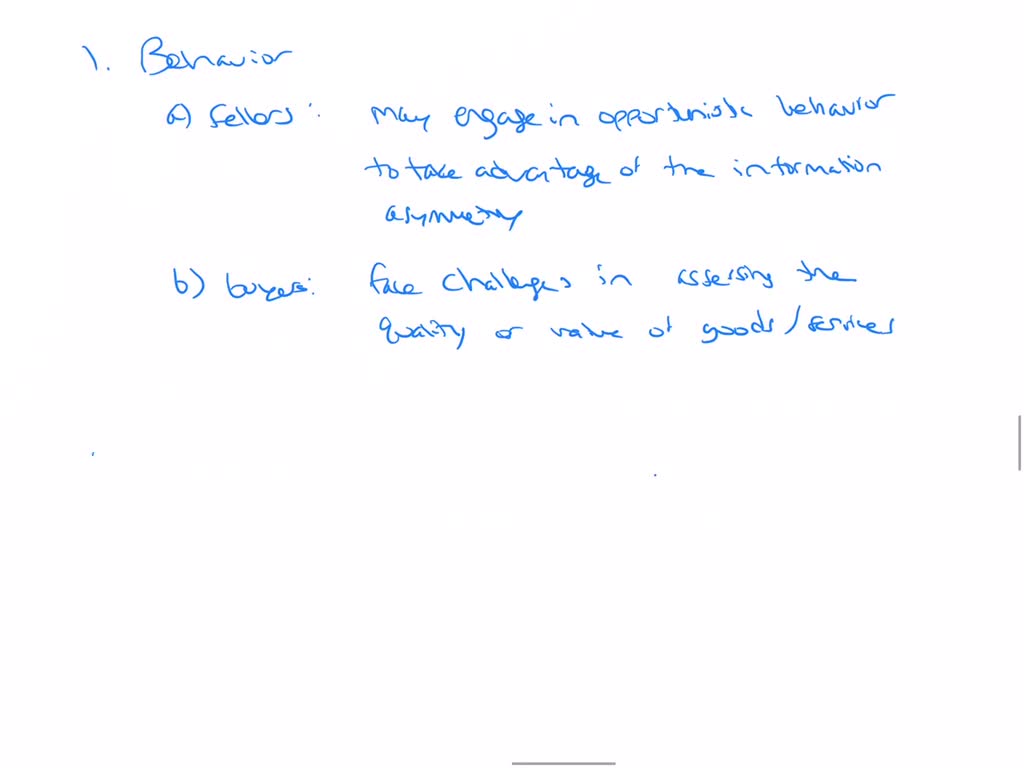 1. Behavior
a) Sellers: May engage in opportunistic behavior
to take advantage of the information
asymmetry
b) buyers: face challenges in assessing the
quality or value of goods/services